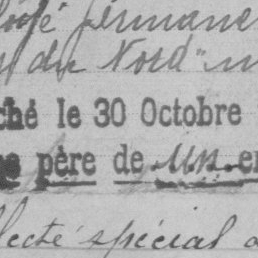 permane
du Nord"
ché le 30 Octobre
père de un en
lecté spécial a